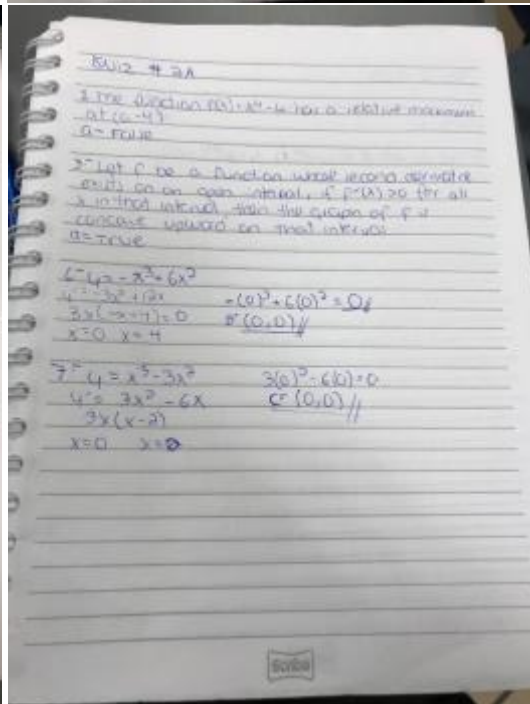 Quiz # 2A
1 The function f(x) = x⁴ - 6 has a relative maximum
at
a = False
2- Let f be a function whose second derivative
exists on an open interval, if f''(x) > 0 for all
x in that interval, then the graph of f is
concave upward on that interval
a = True
6- y = -x³ + 6x²
-(0)³ + 6(0)² = 0//
3x(-x+4) = 0
(0,0)//
x=0 x=4
7- y = x³ - 3x²
3(0)² - 6(0) = 0
y' = 3x² - 6x
c- (0,0)//
3x(x-2)
x=0
Scribe